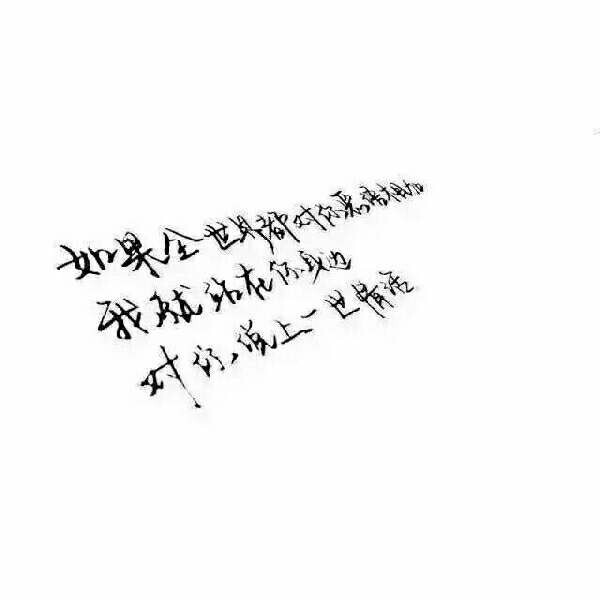 如果全世界都对你恶语相加
我就站在你身边
对你说上一世情话